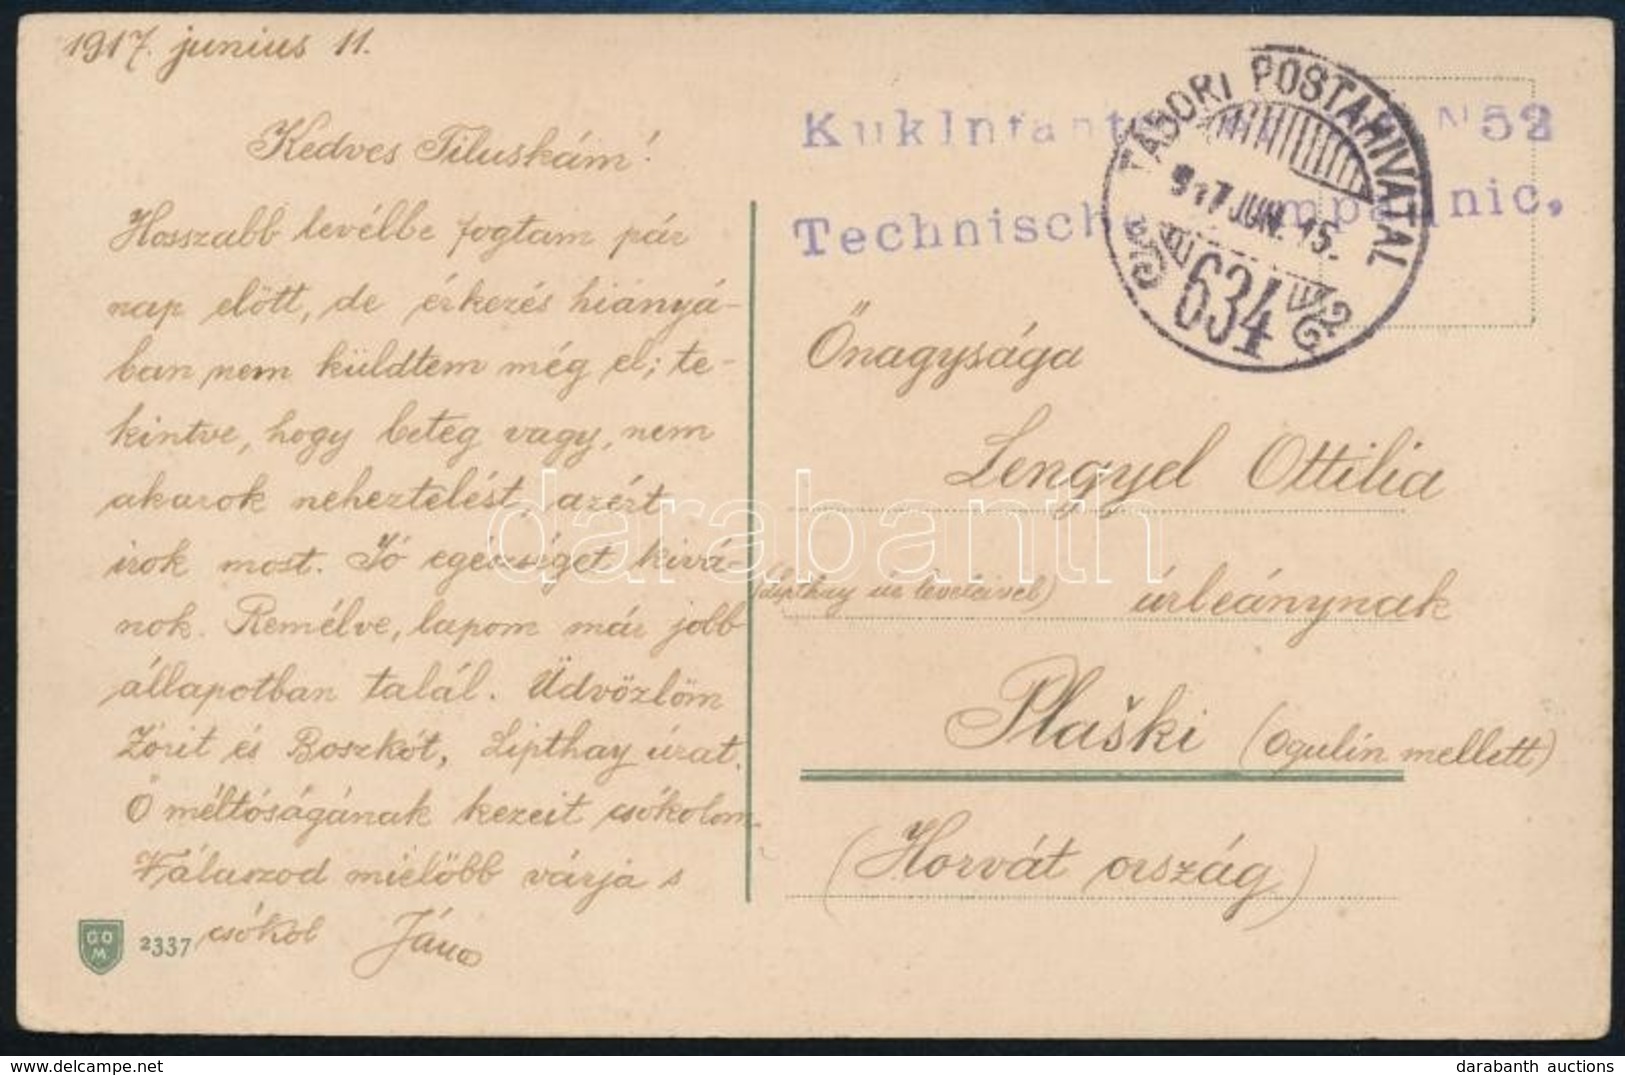 1917. junius 11.
Kedves Tiluskám!
Hosszabb levélbe fogtam pár
nap elött, de érkezés hiányá-
ban nem küldtem még el; te-
kintve, hogy beteg vagy, nem
akarok neheztelést, azért
irok most. Jó egészséget kivá-
nok. Remélve, lapom már jobb
állapotban talál. Üdvözlöm
Zórit és Boszkót, Lipthay úrat.
Ö méltóságának kezeit csókolom.
Válaszod mielöbb várja s
csókol János
GO
M
2337
KukInfant N 52
Technische mpagnie,
TÁBORI POSTAHIVATAL
917 JUN. 15.
634
Önagysága
Lengyel Ottilia
(Lipthay úr leveleivel) úrleánynak
Plaški (Ogulin mellett)
(Horvát ország)
darabanth
darabanth auctions